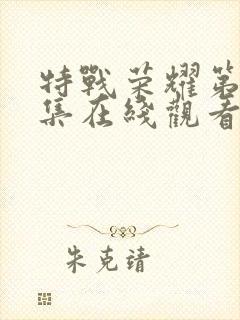 特戰荣耀第
集在綫觀看
朱克靖